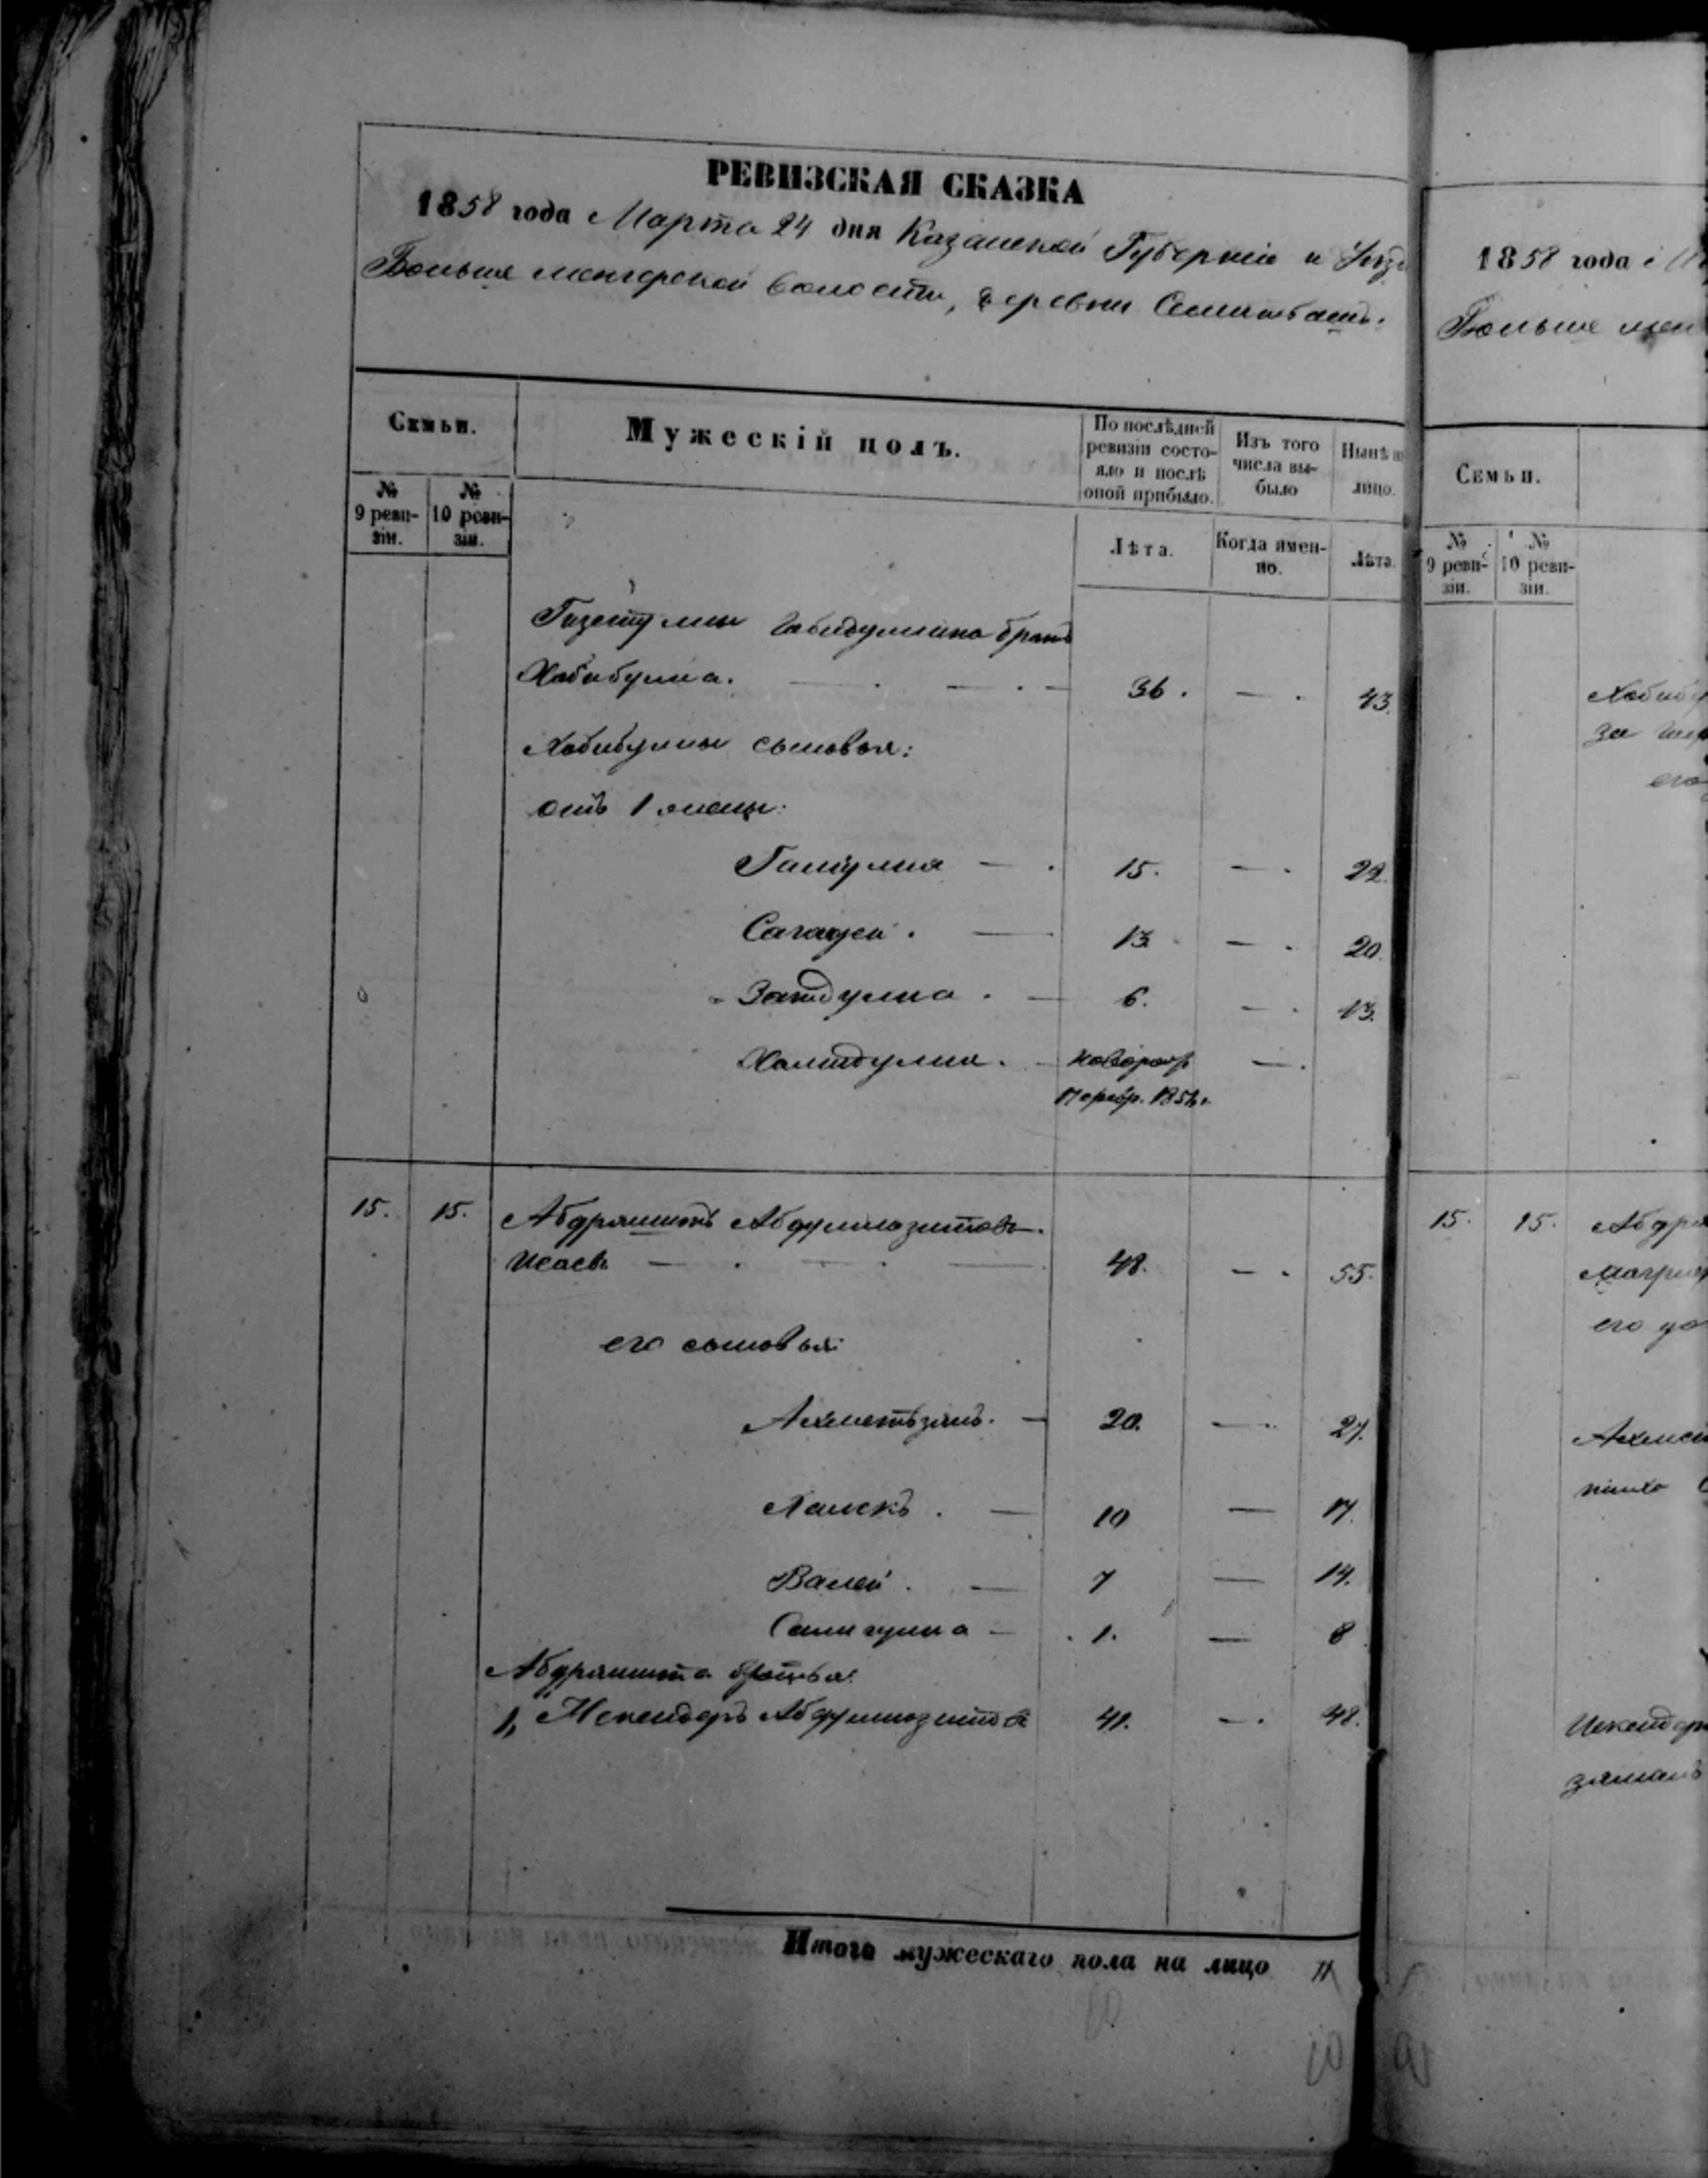 РЕВИЗСКАЯ СКАЗКА
1858 года Марта 24 дня Казанской Губернии и Уезд
Больше менгерской волости, деревни
Семьи.
Мужескій полъ.
По послѣдней ревизіи состояло и послѣ оной прибыло.
Изъ того числа выбыло
Нынѣ н
лицо.
№ 9 ревизіи.
№ 10 ревизіи.
Лѣта.
Когда именно.
Лѣта.
Габидуллина братъ
Хабибулла. 36. — 43.
Хабибуллы сыновья:
отъ 1 жены:
Галиулла — 15. — 22.
Сагадей. — 13. — 20.
Заидулла. — 6. — 13.
Халидулла. — новорож —
15. 15. Абдряшитъ Абдуллазитовъ.
Исаевъ — 48. — 55.
его сыновья:
Ахметьзянъ. — 20. — 27.
Малекъ. — 10 — 17.
Валей. — 7 — 14.
Салигулла — 1. — 8
Абдряшита братья:
1, Искендеръ Абдуллазитовъ 41. — 48.
Итого мужескаго пола на лицо 11
1858 года М
Больше мен
Семьи.
№ 9 ревизіи.
№ 10 ревизіи.
Хабибу
за
его
15. 15. Абдря
его до
Ахмет
Искендер